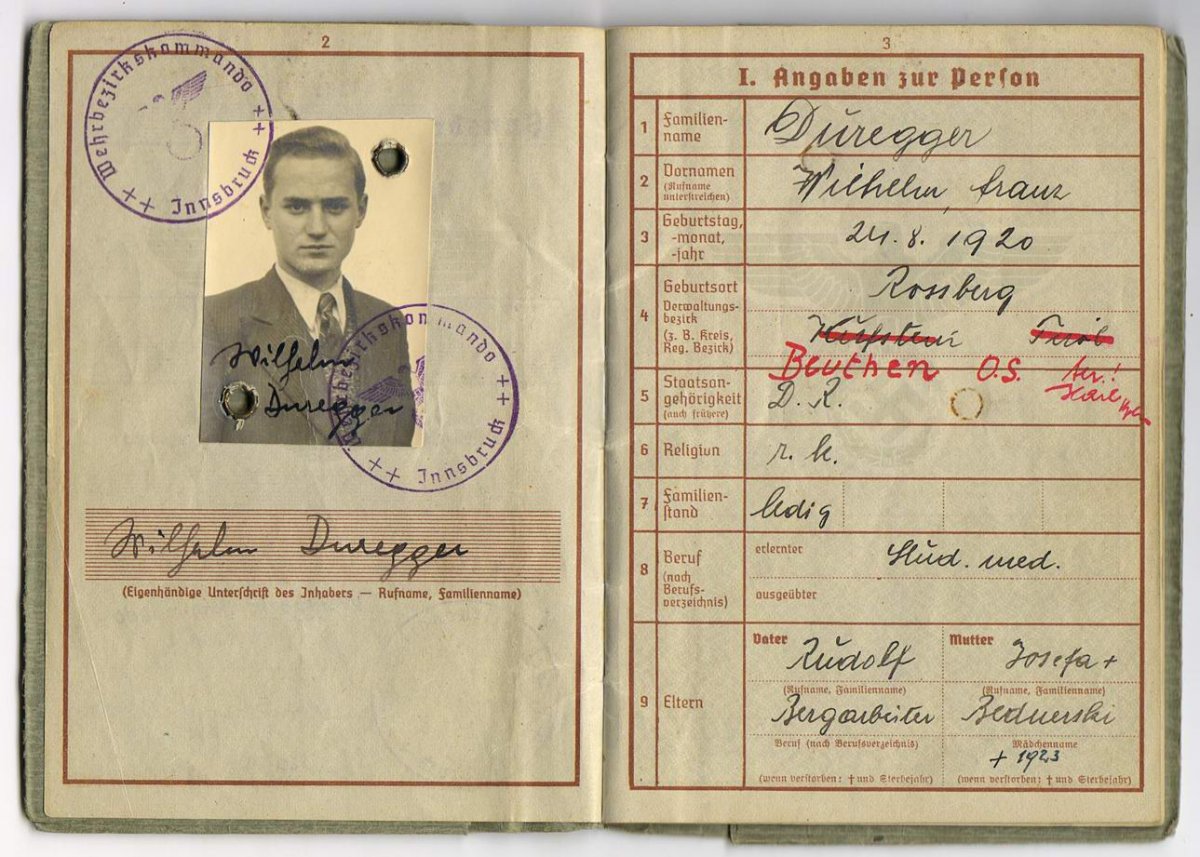 2
++ Wehrbezirkskommando ++ Innsbruck
Wilhelm
Duregger
Wehrbezirkskommando ++ Innsbruck ++
Wilhelm Duregger
(Eigenhändige Unterschrift des Inhabers — Rufname, Familienname)
3
I. Angaben zur Perſon
1 Familien-
name
Duregger
2 Vornamen
(Rufname
unterſtreichen)
Wilhelm, Franz
3 Geburtstag,
-monat,
-jahr
24.8.1920
4 Geburtsort
Verwaltungs-
bezirk
(z. B. Kreis,
Reg. Bezirk)
Rossberg
Kufstein Tirol
Beuthen O.S.
5 Staatsan-
gehörigkeit
(auch frühere)
D.R.
6 Religion
r.k.
7 Familien-
ſtand
ledig
8 Beruf
(nach
Berufs-
verzeichnis)
erlernter
Stud. med.
ausgeübter
9 Eltern
Vater
Rudolf
(Rufname, Familienname)
Bergarbeiter
Beruf (nach Berufsverzeichnis)
(wenn verſtorben: † und Sterbejahr)
Mutter
Josefa +
(Rufname, Familienname)
Bednerski
Mädchenname
+ 1923
(wenn verſtorben: † und Sterbejahr)